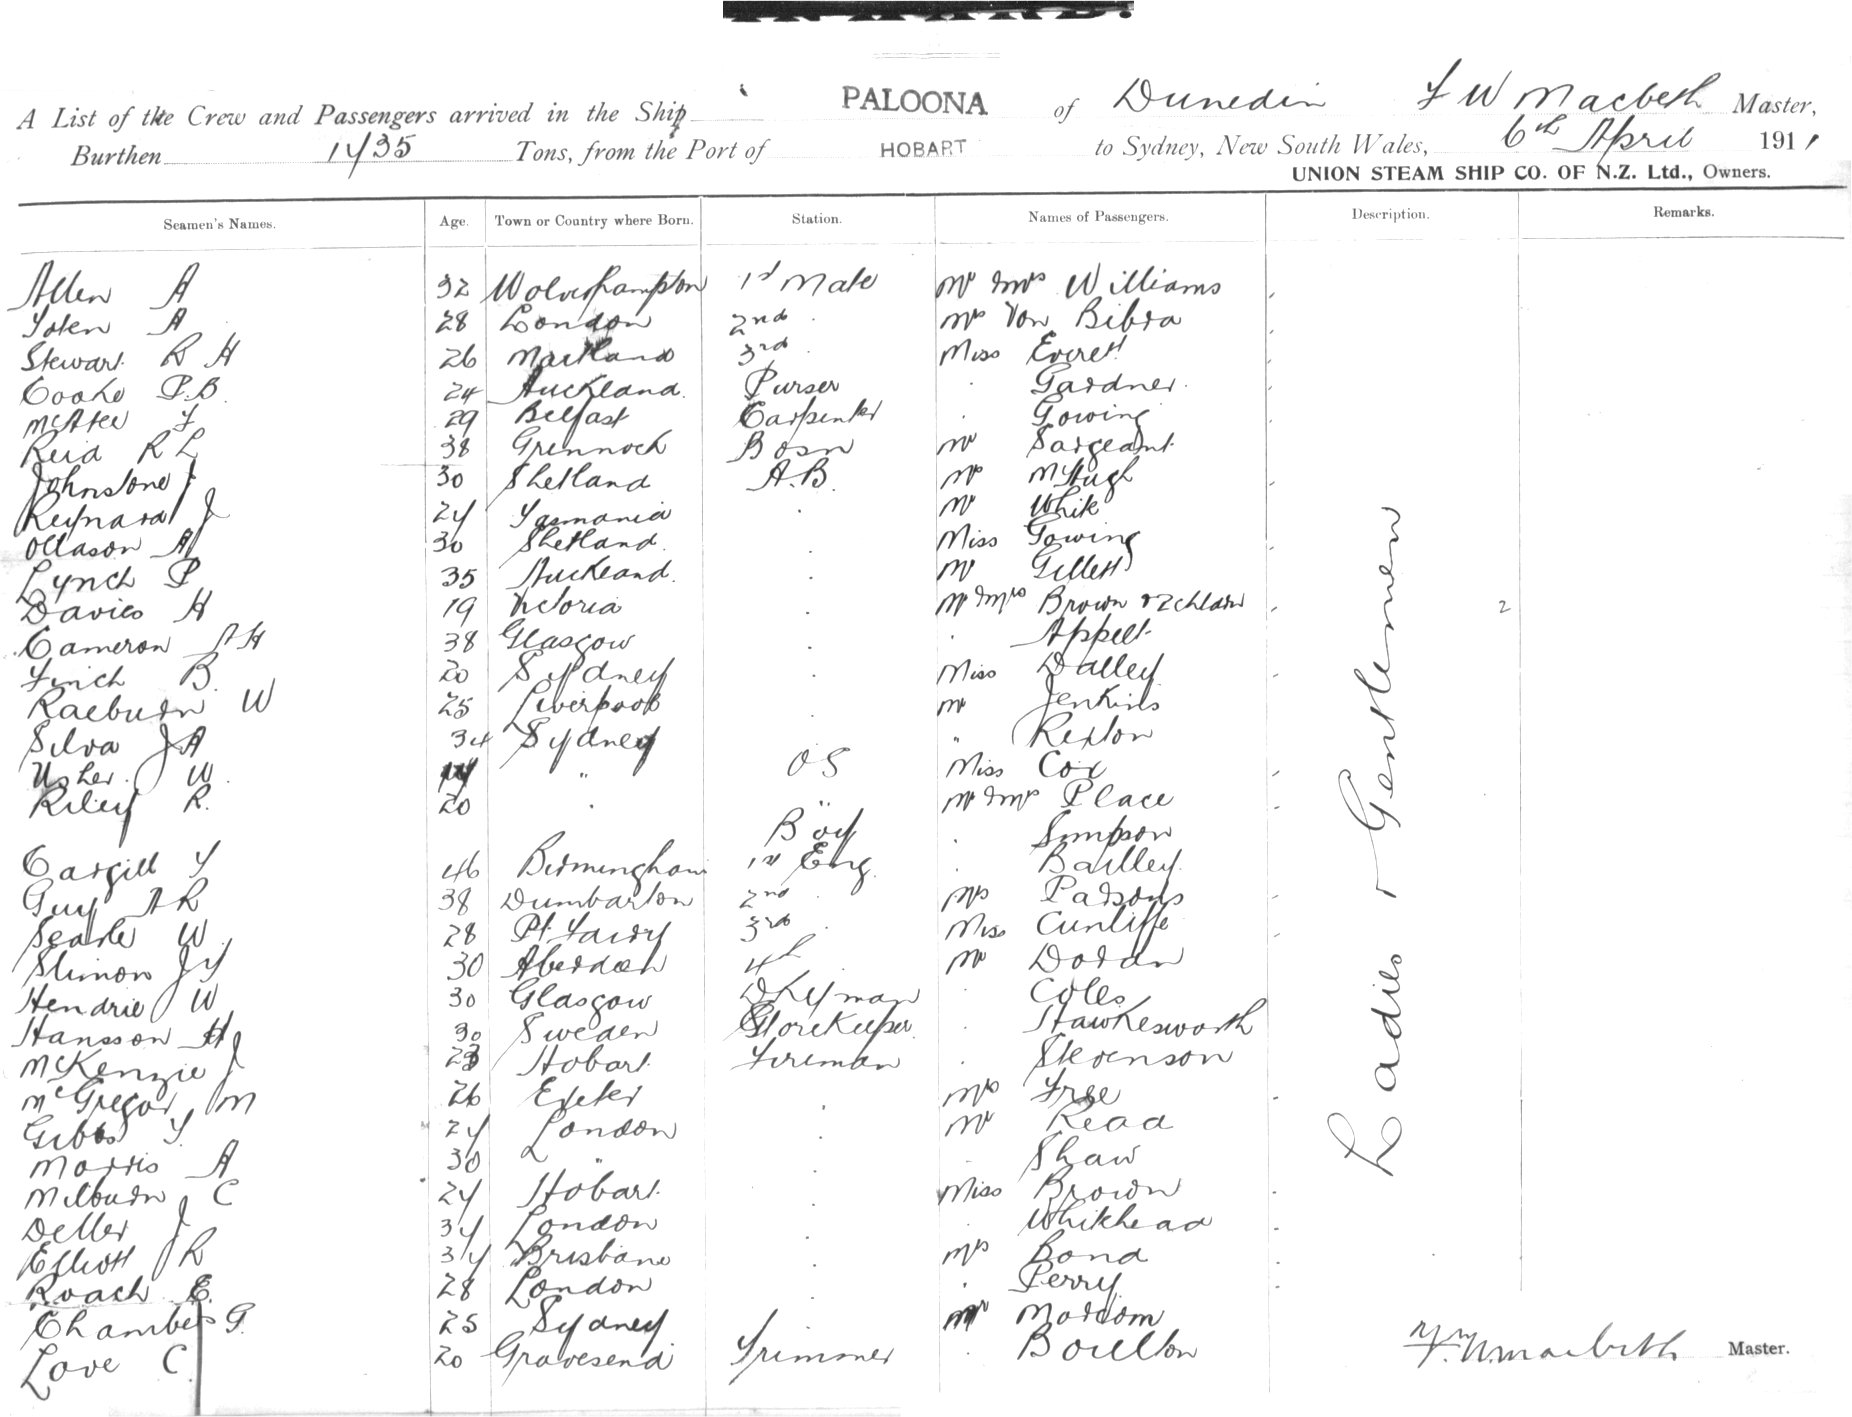 A List of the Crew and Passengers arrived in the Ship PALOONA of Dunedin F W Macbeth Master,
Burthen 1435 Tons, from the Port of HOBART to Sydney, New South Wales, 6th April 1911
UNION STEAM SHIP CO. OF N.Z. Ltd., Owners.
Seamen's Names. Age. Town or Country where Born. Station. Names of Passengers. Description. Remarks.
Allen A 32 Wolverhampton 1st Mate Mr & Mrs Williams
A 28 London 2nd Mrs Von Bibra
Stewart R H 26 Maitland 3rd Miss Everett
Cooke P.B. 24 Auckland. Purser Gardner.
McAtee F 29 Belfast Carpenter Gowing
Reid R L 38 Grennock Bosn Mr Sargeant
Johnstone J 30 Shetland A.B. Mr McHugh
Reynard J 27 Tasmania Mr White
Ollason A 30 Shetland. Miss Gowing
Lynch P 35 Auckland. Mr Gillett
Davies H 19 Victoria Mr & Mrs Brown & 2 chldrn 2
Cameron A H 38 Glasgow Appelt
Finch B. 20 Sydney Miss Dalley
Raeburn W 25 Liverpool Mr Jenkins
Silva J A 34 Sydney " Rexton
Usher. W. " O S Miss Cox
Riley R. 20 " " Mr & Mrs Place
Boy Simpson
Cargill T 46 Birmingham 1st Eng. Bailley.
Guy A R 38 Dumbarton 2nd Mrs Parsons
Searle W 28 Pt. Fairy 3rd Miss Cunliffe
Slimon J Y 30 Aberdeen 4th Mr Doran
Hendrie W 30 Glasgow Dkeyman Coles
Hansson H 30 Sweden Storekeeper Hawkesworth
McKenzie J 23 Hobart. Fireman Stevenson
McGregor M 26 Exeter Mrs Free
Gibbs T. 27 London Mr Read
Morris A 30 " Shaw
Milburn C 27 Hobart. Miss Brown
Deller J 37 London Whitehead
Elliott R 37 Brisbane Mrs Bond
Roach E. 28 London Perry
Chambers G. 25 Sydney Mr Morrom
Love C 20 Gravesend Trimmer Boulton
Ladies & Gentlemen
F. W. Macbeth Master.